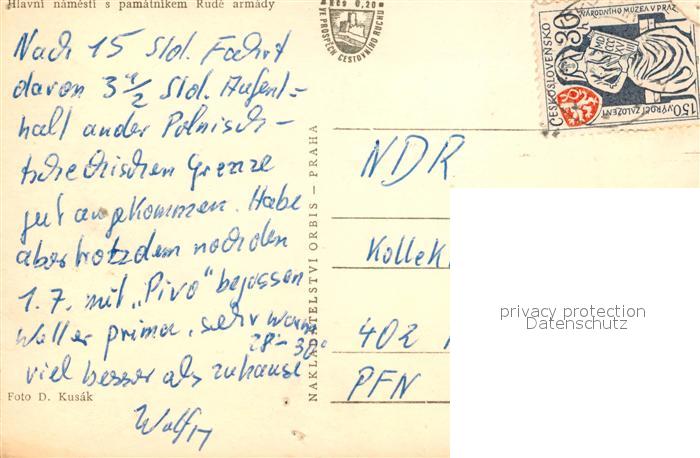 Hlavní náměstí s památníkem Rudé armády
Kčs 0,20
VE PROSPĚCH CESTOVNÍHO RUCHU
ČESKOSLOVENSKO
30
150. VÝROČÍ ZALOŽENÍ
NÁRODNÍHO MUZEA V PRAZE
Nach 15 Std. Fahrt
davon 3 1/2 Std. Aufent=
halt an der Polnisch-
tschechischen Grenze
gut angekommen. Habe
aber trotzdem noch den
1.7. mit „Pivo“ begossen
Wetter prima, sehr warm
28-30°
viel besser als zuhause
Wolf
Foto D. Kusák
NAKLADATELSTVÍ ORBIS — PRAHA
NDR
Kollek
402
PFN
privacy protection
Datenschutz